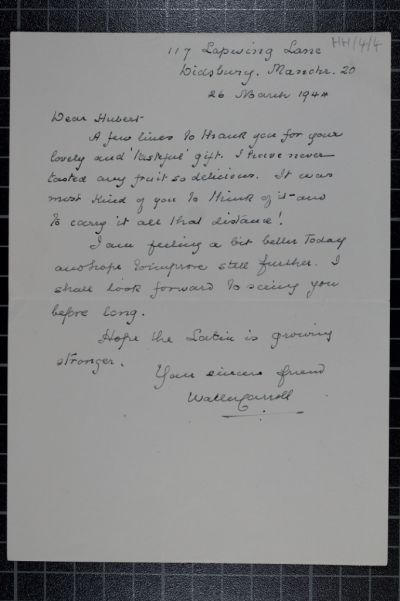 HH/4/4
117 Lapwing Lane
Didsbury. Manchr. 20
26 March 1944
Dear Hubert
A few lines to thank you for your
lovely and 'tasteful' gift. I have never
tasted any fruit so delicious. It was
most kind of you to think of it and
to carry it all that distance!
I am feeling a bit better today
and hope to improve still further. I
shall look forward to seeing you
before long.
Hope the Latin is growing
stronger.
Your sincere friend
Walter Carroll